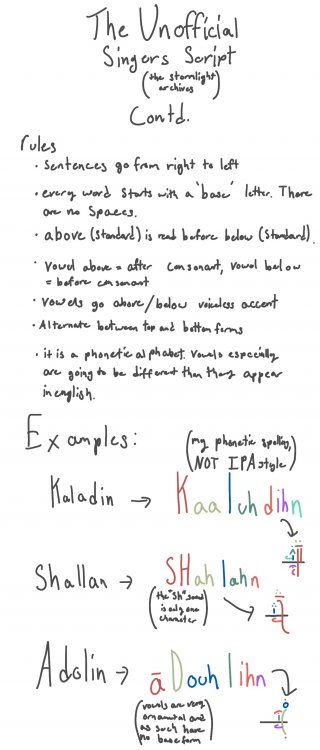 The Unofficial
Singers Script
(the stormlight
archives)
Contd.
rules
• Sentences go from right to left
• every word starts with a 'base' letter. There
are no spaces.
• above (standard) is read before below (standard).
• Vowel above = after consonant, vowel below
= before consonant
• Vowels go above/below voiceless accent
• Alternate between top and bottom forms
• it is a phonetic alphabet. Vowels especially
are going to be different than they appear
in english.
Examples:
(my phonetic spelling,
NOT IPA style)
Kaladin → Kaaluhdihn
Shallan → SHahlahn
(the "Sh" sound
is only one
character)
Adolin → āDoohlihn
(vowels are very
ornamental and
as such have
no base form)